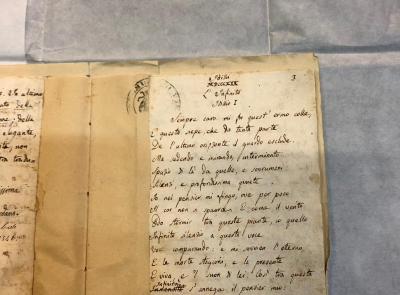 ultimo
della
elegante,
non
3
MDCCCXIX
L'Infinito
Idillio I
Sempre caro mi fu quest'ermo colle,
E questa siepe, che da tanta parte
De l'ultimo orizzonte il guardo esclude.
Ma sedendo e mirando, interminato
Spazio di là da quella, e sovrumani
Silenzi, e profondissima quiete
Io nel pensier mi fingo, ove per poco
Il cor non si spaura. E come il vento
Odo stormir tra queste piante, io quello
Infinito silenzio a questa voce
Vo comparando: e mi sovvien l'eterno,
E le morte stagioni, e la presente
E viva, e 'l suon di lei. Così tra questa
Immensità s'annega il pensier mio: